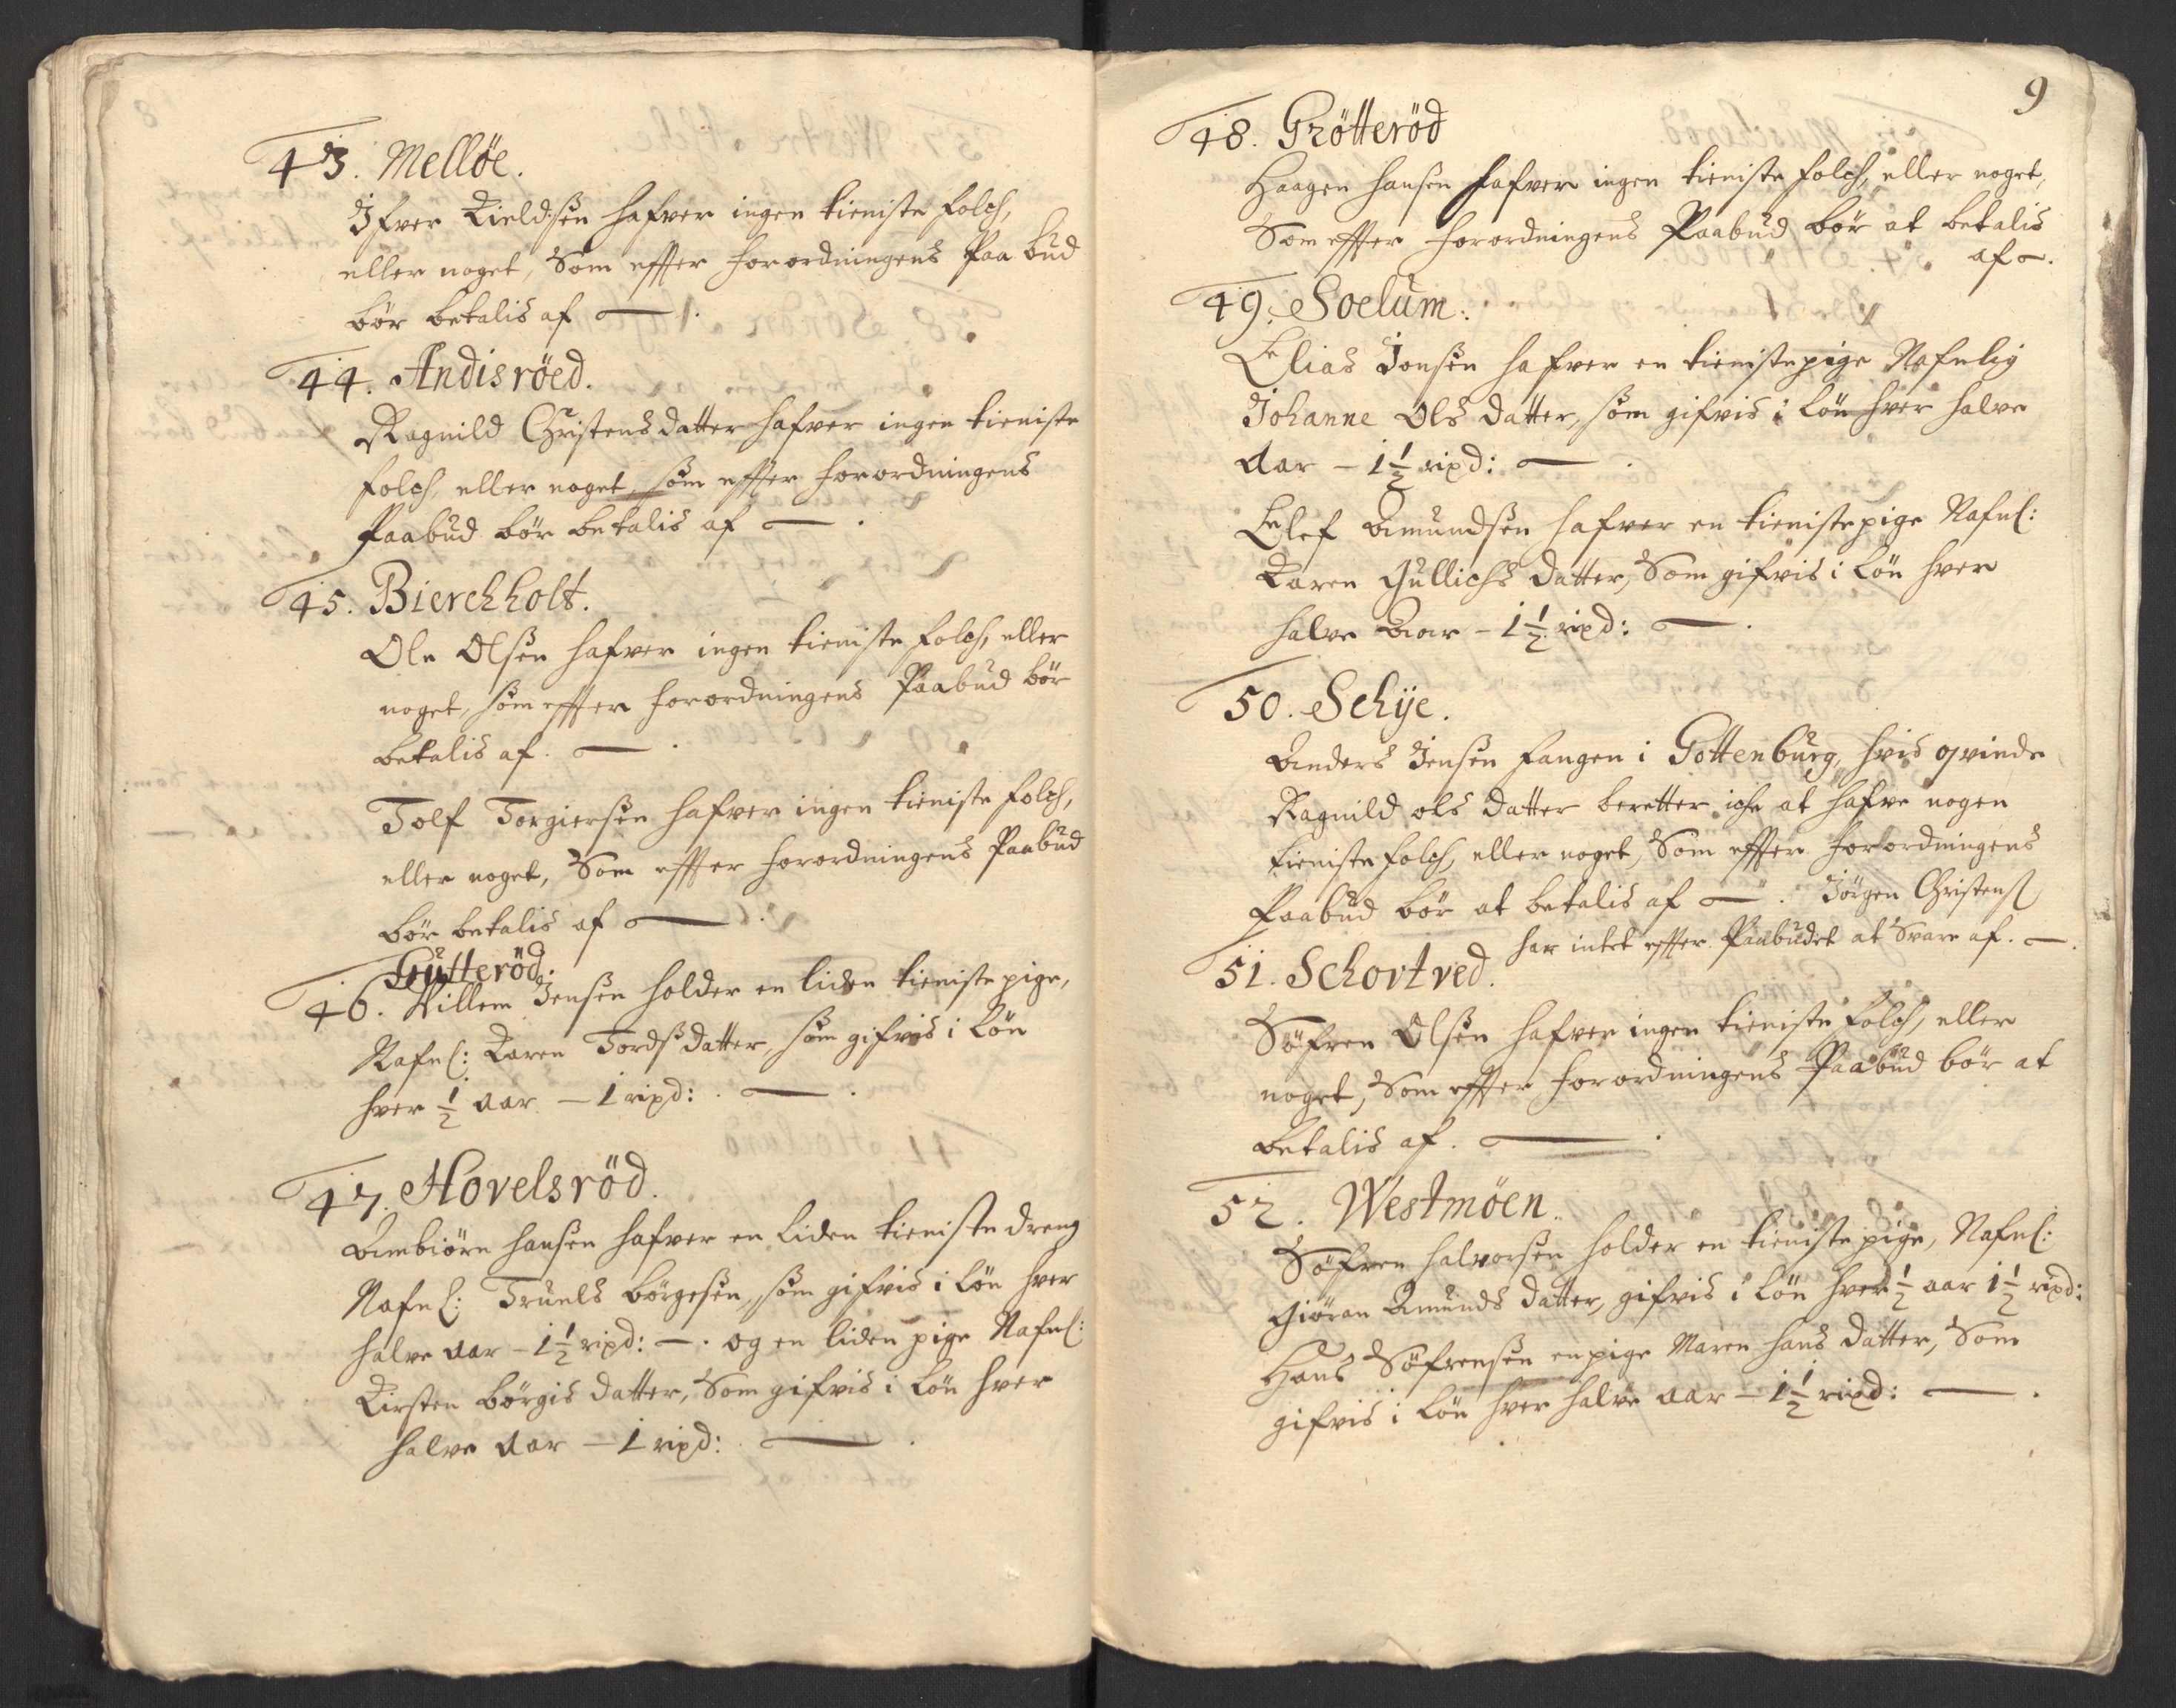 43. Melløe.
Ifver Kieldsen hafver ingen tieniste folch,
eller noget, Som effter forordningens Paabud
bør betalis af —.
44. Andisröed.
Ragnild Christensdatter hafver ingen tieniste
folch, eller noget, som effter forordningens
Paabud bör betalis af —.
45. Bierchholt.
Ole Olsen hafver ingen tieniste folch, eller
noget, som effter forordningens Paabud bör
betalis af. —.
Tolf Torgiersen hafver ingen tieniste folch,
eller noget, Som effter forordningens Paabud
bör betalis af —.
Gutteröd.
46. Willem Jensen holder en liden tieniste pige,
Nafnl: Karen Tordsdatter, som gifvis i Lön
hver ½ aar — 1 rixd: —.
47. Hovelsröd.
Ambiörn hansen hafver en liden tieniste dreng
Nafnl: Truels börgesen, som gifvis i Lön hver
halve aar — 1½ rixd: —. og en liden pige Nafnl:
Kirsten börgis datter, Som gifvis i Lön hver
halve aar — 1 rixd: —.
9
48. Grötteröd
Haagen hansen hafver ingen tieniste folch, eller noget,
Som effter forordningens Paabud bör at betalis
af —.
49. Soelum.
Elias Jonsen hafver en tienistepige Nafnlig
Johanne Ols datter, som gifvis i Lön hver halve
aar — 1½ rixd: —.
Elef Amundsen hafver en tienistepige Nafnl:
Karen Gullichs datter, Som gifvis i Lön hver
halve Aar — 1½ rixd: —.
50. Schije.
Anders Jensen fangen i Gottenburg, hvis qvinde
Ragnild ols datter beretter iche at hafve nogen
tieniste folch, eller noget, Som effter forordningens
Paabud bör at betalis af —. Jörgen Christens
har intet effter Paabudet at Svare af. —.
51. Schortved.
Söfren Olsen hafver ingen tieniste folch, eller
noget, Som effter forordningens Paabud bör at
betalis af. —.
52. Westmöen.
Söfren halvorsen holder en tieniste pige, Nafnl:
Giöran Amunds datter, gifvis i Lön hver ½ aar 1½ rixd:
Hans Söfrensen en pige Maren hans datter, Som
gifvis i Lön hver halve aar — 1½ rixd: —.